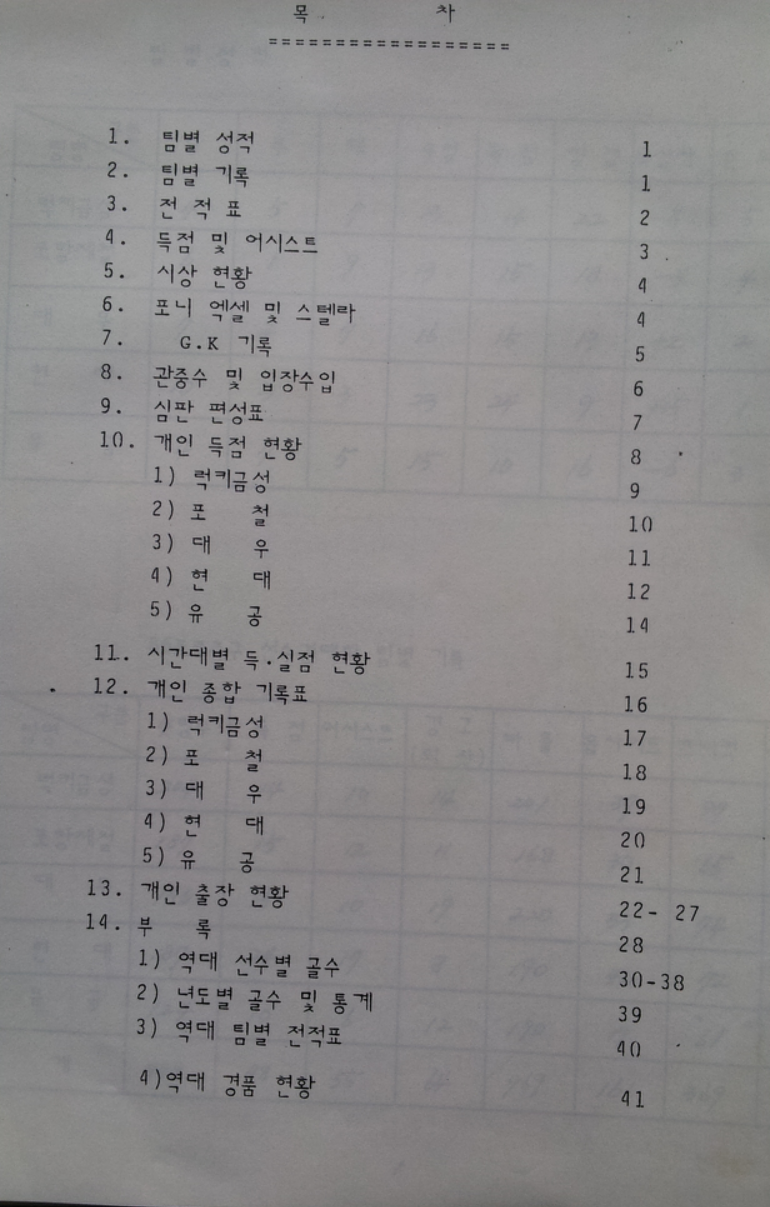 목 차
==================
1. 팀별 성적 1
2. 팀별 기록 1
3. 전 적 표 2
4. 득점 및 어시스트 3
5. 시상 현황 4
6. 포니 엑셀 및 스텔라 4
7. G.K 기록 5
8. 관중수 및 입장수입 6
9. 심판 편성표 7
10. 개인 득점 현황 8
1) 럭키금성 9
2) 포 철 10
3) 대 우 11
4) 현 대 12
5) 유 공 14
11. 시간대별 득.실점 현황 15
12. 개인 종합 기록표 16
1) 럭키금성 17
2) 포 철 18
3) 대 우 19
4) 현 대 20
5) 유 공 21
13. 개인 출장 현황 22- 27
14. 부 록 28
1) 역대 선수별 골수 30-38
2) 년도별 골수 및 통계 39
3) 역대 팀별 전적표 40
4)역대 경품 현황 41